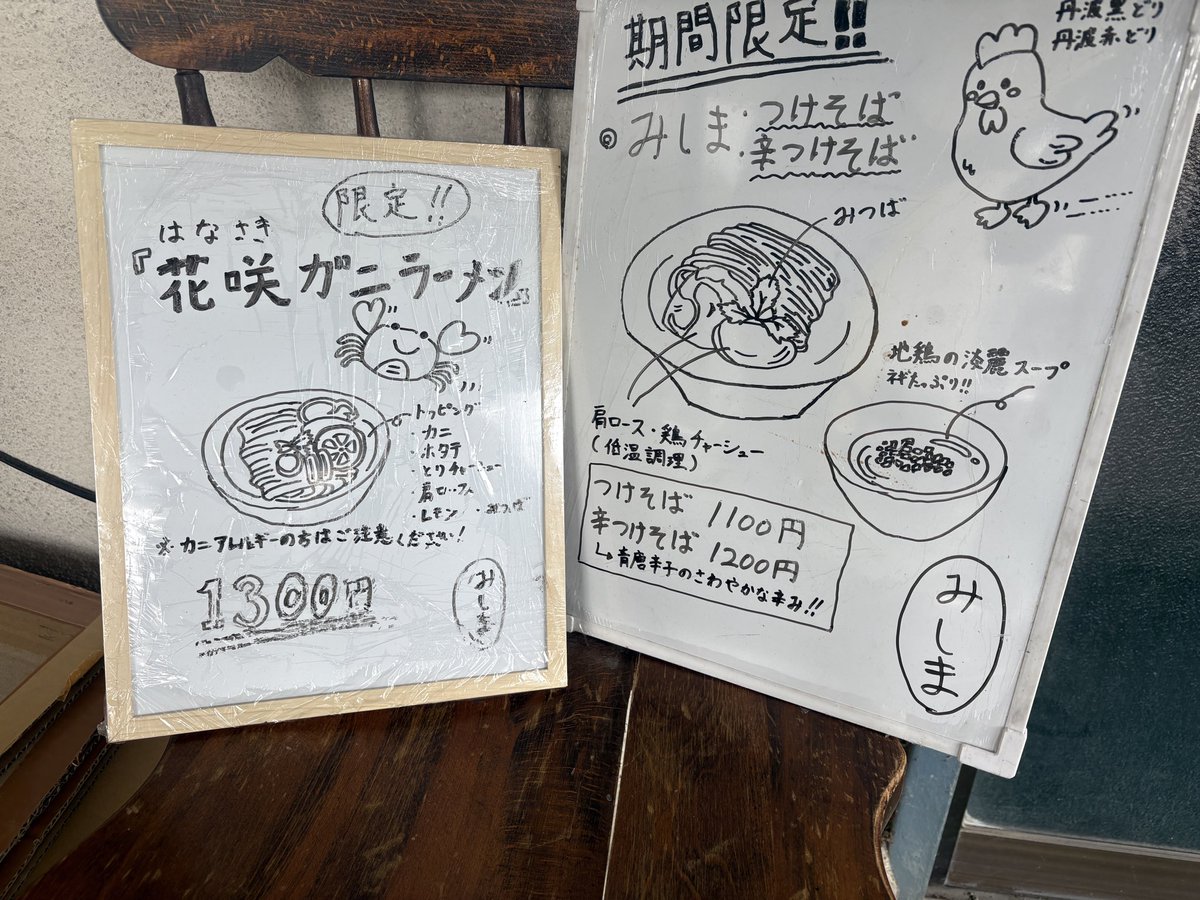 限定!!
はなさき
『花咲ガニラーメン』
トッピング
・カニ
・ホタテ
・とりチャーシュー
・肩ロース
・レモン ・みつば
※カニアレルギーの方はご注意ください!
1300円
みしま
期間限定!!
丹波黒どり
丹波赤どり
◎みしま:つけそば
辛つけそば
みつば
地鶏の淡麗スープ
ネギたっぷり!!
肩ロース・鶏チャーシュー
(低温調理)
つけそば 1100円
辛つけそば 1200円
↳青唐辛子のさわやかな辛み!!
みしま